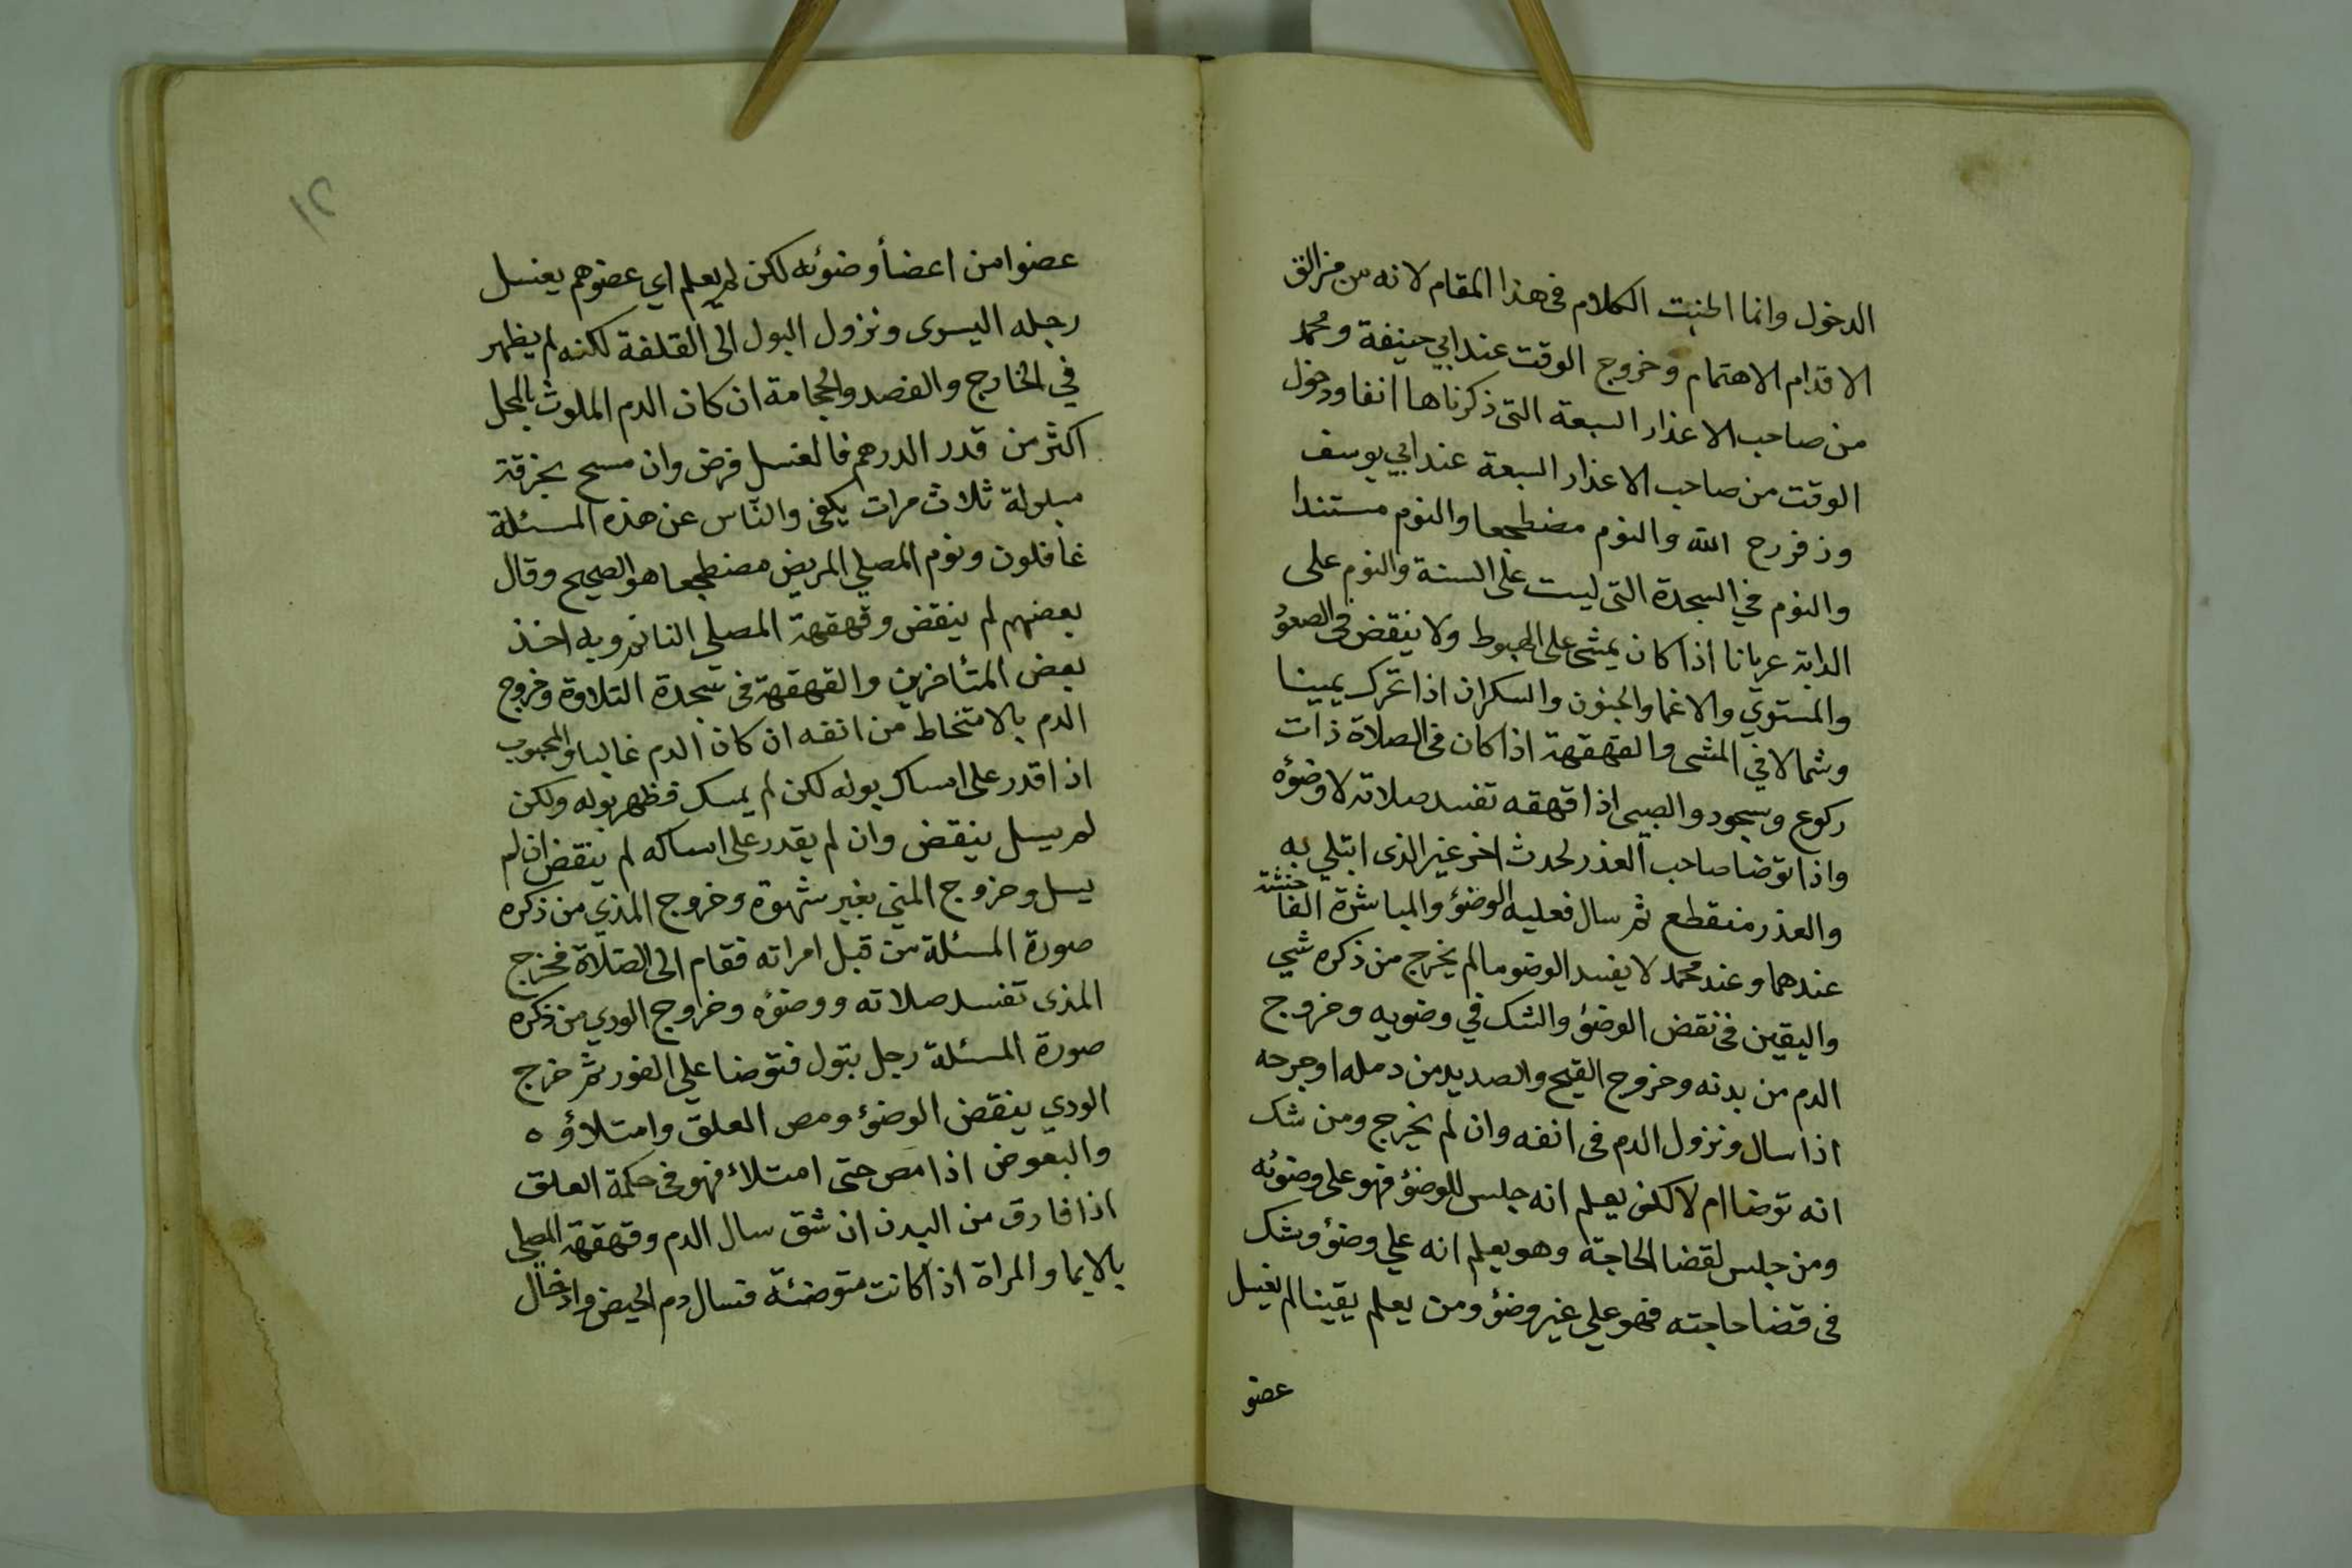 الدخول وانما اطنبت الكلام فى هذا المقام لانه من مزالق
الاقدام الاهتمام وخروج الوقت عند ابي حنيفة ومحمد
من صاحب الاعذار السبعة التى ذكرناها انفا ودخول
الوقت من صاحب الاعذار السبعة عند ابي يوسف
وزفر رح الله والنوم مضطجعا والنوم مستندا
والنوم في السجدة التى ليست على السنة والنوم على
الدابة عريانا اذا كان يمشى على الهبوط ولا ينقض فى الصعوُ
والمستوي والاغما والجنون والسكران اذا تحرك يمينا
وشمالا في المشى والقهقهة اذا كان فى الصلاة ذات
ركوع وسجود والصبى اذا قهقه تفسد صلاته لا وضؤه
واذا توضا صاحب العذر لحدث اخر غير الذى ابتلي به
والعذر منقطع ثم سال فعليه الوضؤ والمباشرة الفا حشة
عندهما وعند محمد لا يفسد الوضو مالم يخرج من ذكره شي
واليقين فى نقض الوضؤ والشك في وضويه وخروج
الدم من بدنه وخروج القيح والصديد من دمله او جرحه
اذا سال ونزول الدم فى انفه وان لم يخرج ومن شك
انه توضا ام لا لكن يعلم انه جلس للوضؤ فهو على وضوئه
ومن جلس لقضا الحاجة وهو يعلم انه علي وضؤ وشك
فى قضا حاجته فهو علي غير وضؤ ومن يعلم يقينا لم يغسل
عضو
١٢
عضوا من اعضأ وضوئه لكن لم يعلم اي عضوهم يغسل
رجله اليسرى ونزول البول الى القلفة لكنه لم يظهر
في الخارج والفصد والحجامة ان كان الدم الملوث بالمحل
اكثر من قدر الدرهم فالغسل فرض وان مسح بخرقة
مبلولة ثلاث مرات يكفى والناس عن هذه المسئلة
غافلون ونوم المصلي المريض مضطجعا هو الصحيح وقال
بعضهم لم ينقض وقهقهة المصلي النائم وبه اخذ
بعض المتأخرين والقهقهة فى سجدة التلاوة وخروج
الدم بالامتخاط من انفه ان كان الدم غالبا والمجبوب
اذا قدر على امساك بوله لكن لم يمسك فظهر بوله ولكن
لم يسل ينقض وان لم يقدر على امساكه لم ينقض ان لم
يسل وخروج المني بغير شهوة وخروج المذي من ذكره
صورة المسئلة من قبل امراته فقام الى الصلاة فخرج
المذى تفسد صلاته ووضؤه وخروج الودي من ذكره
صورة المسئلة رجل يتول فتوضا علي الفور ثم خرج
الودي ينقض الوضؤ ومص العلق وامتلاؤه
والبعوض اذا مص حتى امتلاء فهو فى حكمة العلق
اذا فارق من البدن ان شق سال الدم وقهقهة المصلي
بالايما والمراة اذا كانت متوضئة فسال دم الحيض وادخال